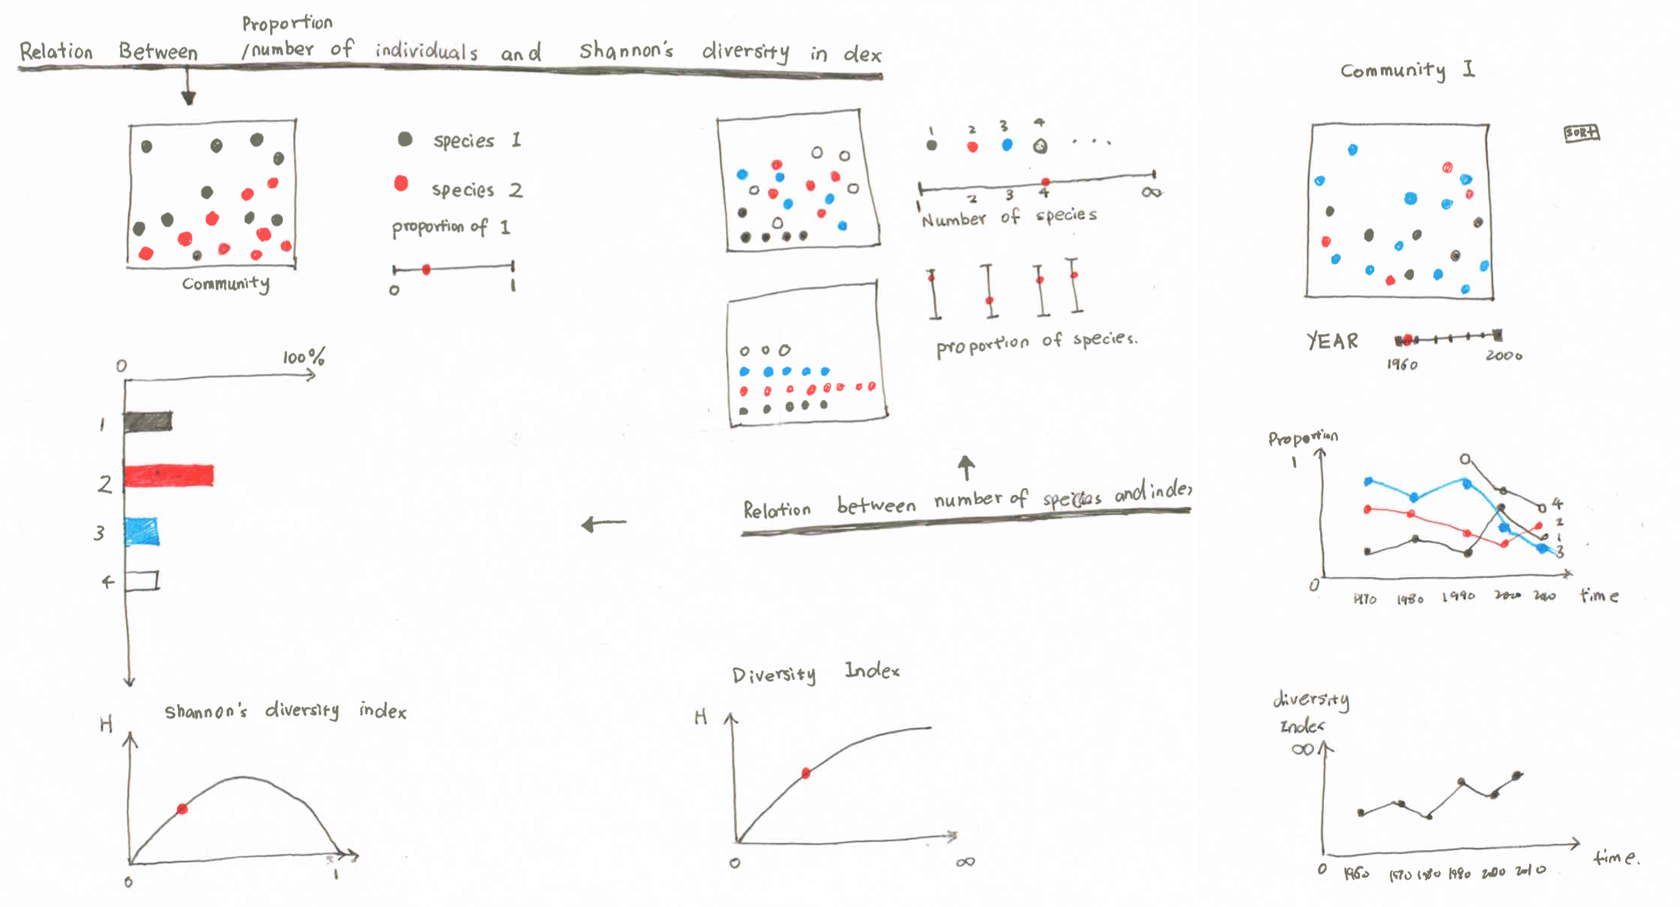 Proportion
Relation Between /number of individuals and Shannon's diversity in dex
species 1
species 2
proportion of 1
0 1
Community
0 100%
1
2
3
4
Shannon's diversity index
H
0 1
1 2 3 4 ...
1 2 3 4 ∞
Number of species
proportion of species.
Relation between number of species and index
Diversity Index
H
0 ∞
Community I
SORT
YEAR
1960 2000
Proportion
1
4
2
1
3
0
1970 1980 1990 2000 2010 time
diversity
Index
∞
0 1960 1970 1980 1990 2000 2010 time.